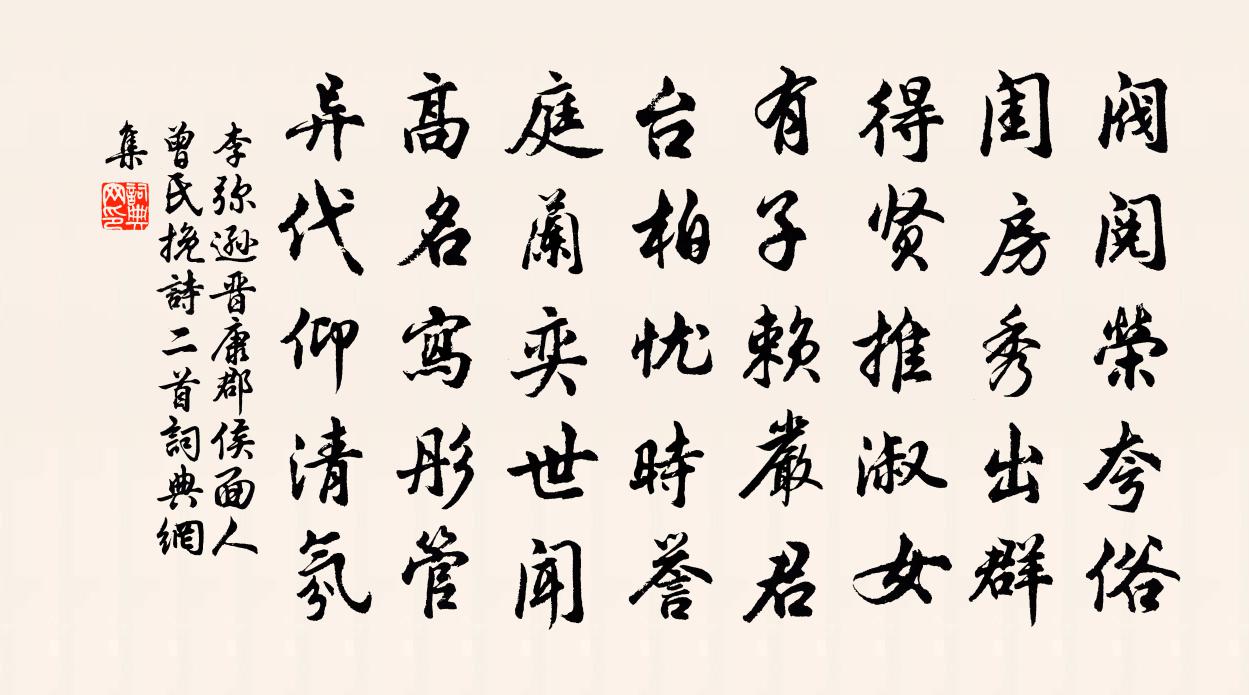 阀阅榮夸俗
闺房秀出群
得贤推淑女
有子赖嚴君
台柏忧時誉
庭蘭奕世闻
高名寫彤管
异代仰清氛
李弥逊晋康郡侯面人
曾氏挽詩二首詞典網
集
詞典网印